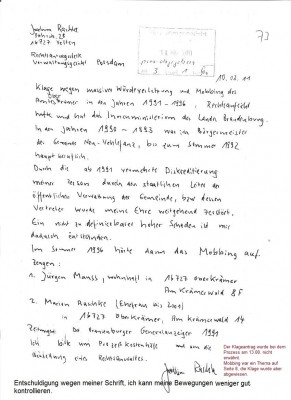 73
Bahnstr. 25
16727 Velten
Rechtsantragstelle
Verwaltungsgericht Potsdam
10.03.11
Klage wegen massiver Würdeverletzung und Mobbing des
Amtes Krämer in den Jahren 1991 - 1996, Rechtsaufsicht
hatte und hat das Innenministerium des Landes Brandenburg.
In den Jahren 1990 - 1993 war im Bürgermeister
der Gemeinde Neu-Vehlefanz, bis zum Sommer 1992
hauptberuflich.
Durch die ab 1991 vermehrte Diskreditierung
meiner Person durch den staatlichen
öffentlichen Verwaltung der Gemeinde, bzw deren
Vertreter wurde meine Ehre weitgehend zerstört.
Ein nicht zu definierbarer hoher Schaden ist mir
dadurch entstanden.
Im Sommer 1996 hörte dann das Mobbing auf.
Zeugen:
1. Jürgen Manss, wohnhaft in 16727 Oberkrämer
Am Krämerwald 8F
2. Marion Raschke (Ehefrau bis 2001)
in 16727 Oberkrämer, Am Krämerwald 14
Brandenburger Generalanzeiger 1991
Ich bitte um Prozeßkostenhilfe und um die
eines Rechtsanwaltes.
Der Klageantrag wurde bei dem
Prozess am 13.08. nicht
erwähnt.
Mobbing war ein Thema auf
Seite 8, die Klage wurde aber
abgewiesen.
Entschuldigung wegen meiner Schrift, ich kann meine Bewegungen weniger gut
kontrollieren.